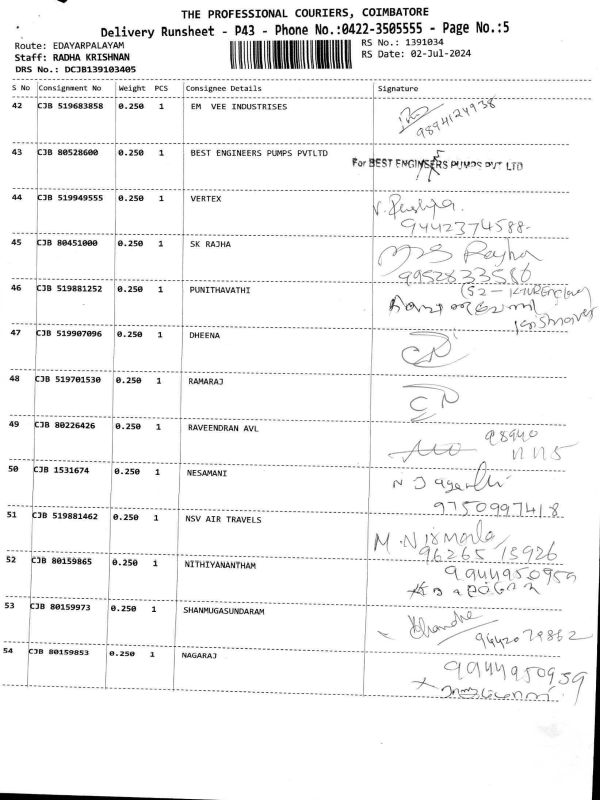 THE PROFESSIONAL COURIERS, COIMBATORE
Delivery Runsheet - P43 - Phone No.:0422-3505555 - Page No.:5
Route: EDAYARPALAYAM
RS No.: 1391034
Staff: RADHA KRISHNAN
RS Date: 02-Jul-2024
DRS No.: DCJB139103405
S No Consignment No Weight PCS Consignee Details Signature
42 CJB 519683858 0.250 1 EM VEE INDUSTRISES
9894124938
43 CJB 80528600 0.250 1 BEST ENGINEERS PUMPS PVTLTD For BEST ENGINEERS PUMPS PVT LTD
44 CJB 519949555 0.250 1 VERTEX
9442374588-
45 CJB 80451000 0.250 1 SK RAJHA
9952833586
46 CJB 519881252 0.250 1 PUNITHAVATHI
47 CJB 519907096 0.250 1 DHEENA
48 CJB 519701530 0.250 1 RAMARAJ
49 CJB 80226426 0.250 1 RAVEENDRAN AVL
98940
11115
50 CJB 1531674 0.250 1 NESAMANI
9750997418
51 CJB 519881462 0.250 1 NSV AIR TRAVELS
M. Nirmala
96265 13926
52 CJB 80159865 0.250 1 NITHIYANANTHAM
9944950959
53 CJB 80159973 0.250 1 SHANMUGASUNDARAM
9442079862
54 CJB 80159853 0.250 1 NAGARAJ
9944950959